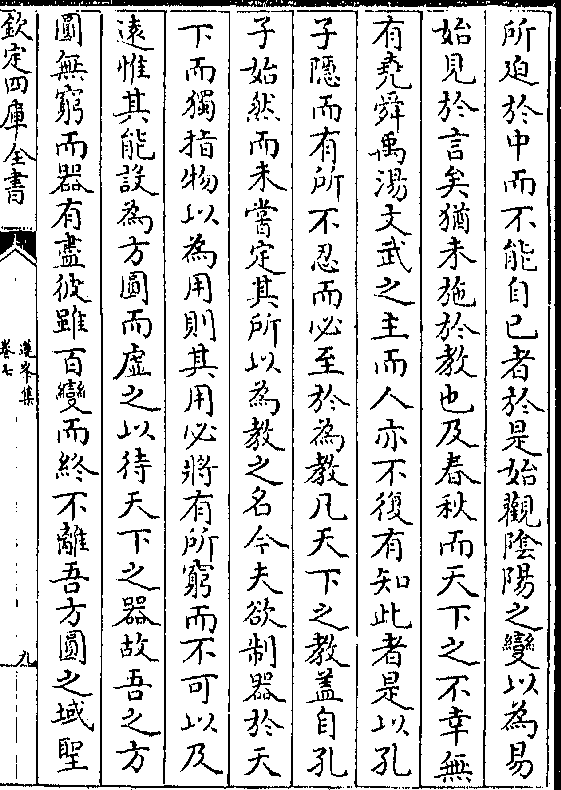 所迫於中而不能自已者於是始觀陰陽之變以為易
始見於言矣猶未施於教也及春秋而天下之不幸無
有堯舜禹湯文武之主而人亦不復有知此者是以孔
子隱而有所不忍而必至於為教凡天下之教蓋自孔
子始然而未嘗定其所以為教之名今夫欲制器於天
下而獨指物以為用則其用必將有所窮而不可以及
遠惟其能設為方圓而虛之以待天下之器故吾之方
圓無窮而器有盡彼雖百變而終不離吾方圓之域聖
欽定四庫全書
卷七
九